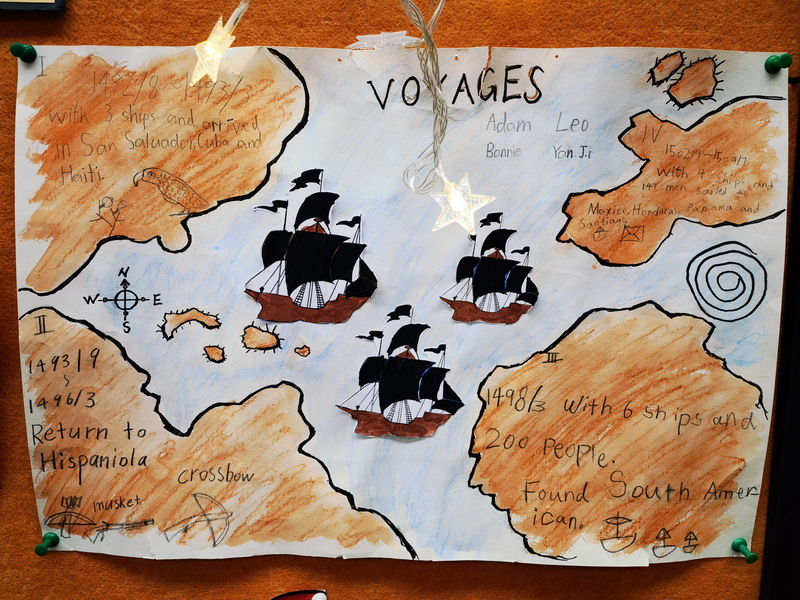 VOYAGES
Adam Leo
Bonnie Yan.Ji
I
1492/8~1493/3
with 3 ships and arrived
in San Salvador, Cuba and
Haiti.
N
W E
S
II
1493/9
~
1496/3
Return to
Hispaniola
crossbow
musket
III
1498/3 with 6 ships and
200 people.
Found South Amer
ican.
IV
1502/9~1504/7
with 4 ships and
147 men sailed to
Mexico, Honduras, Panama and
Santiago